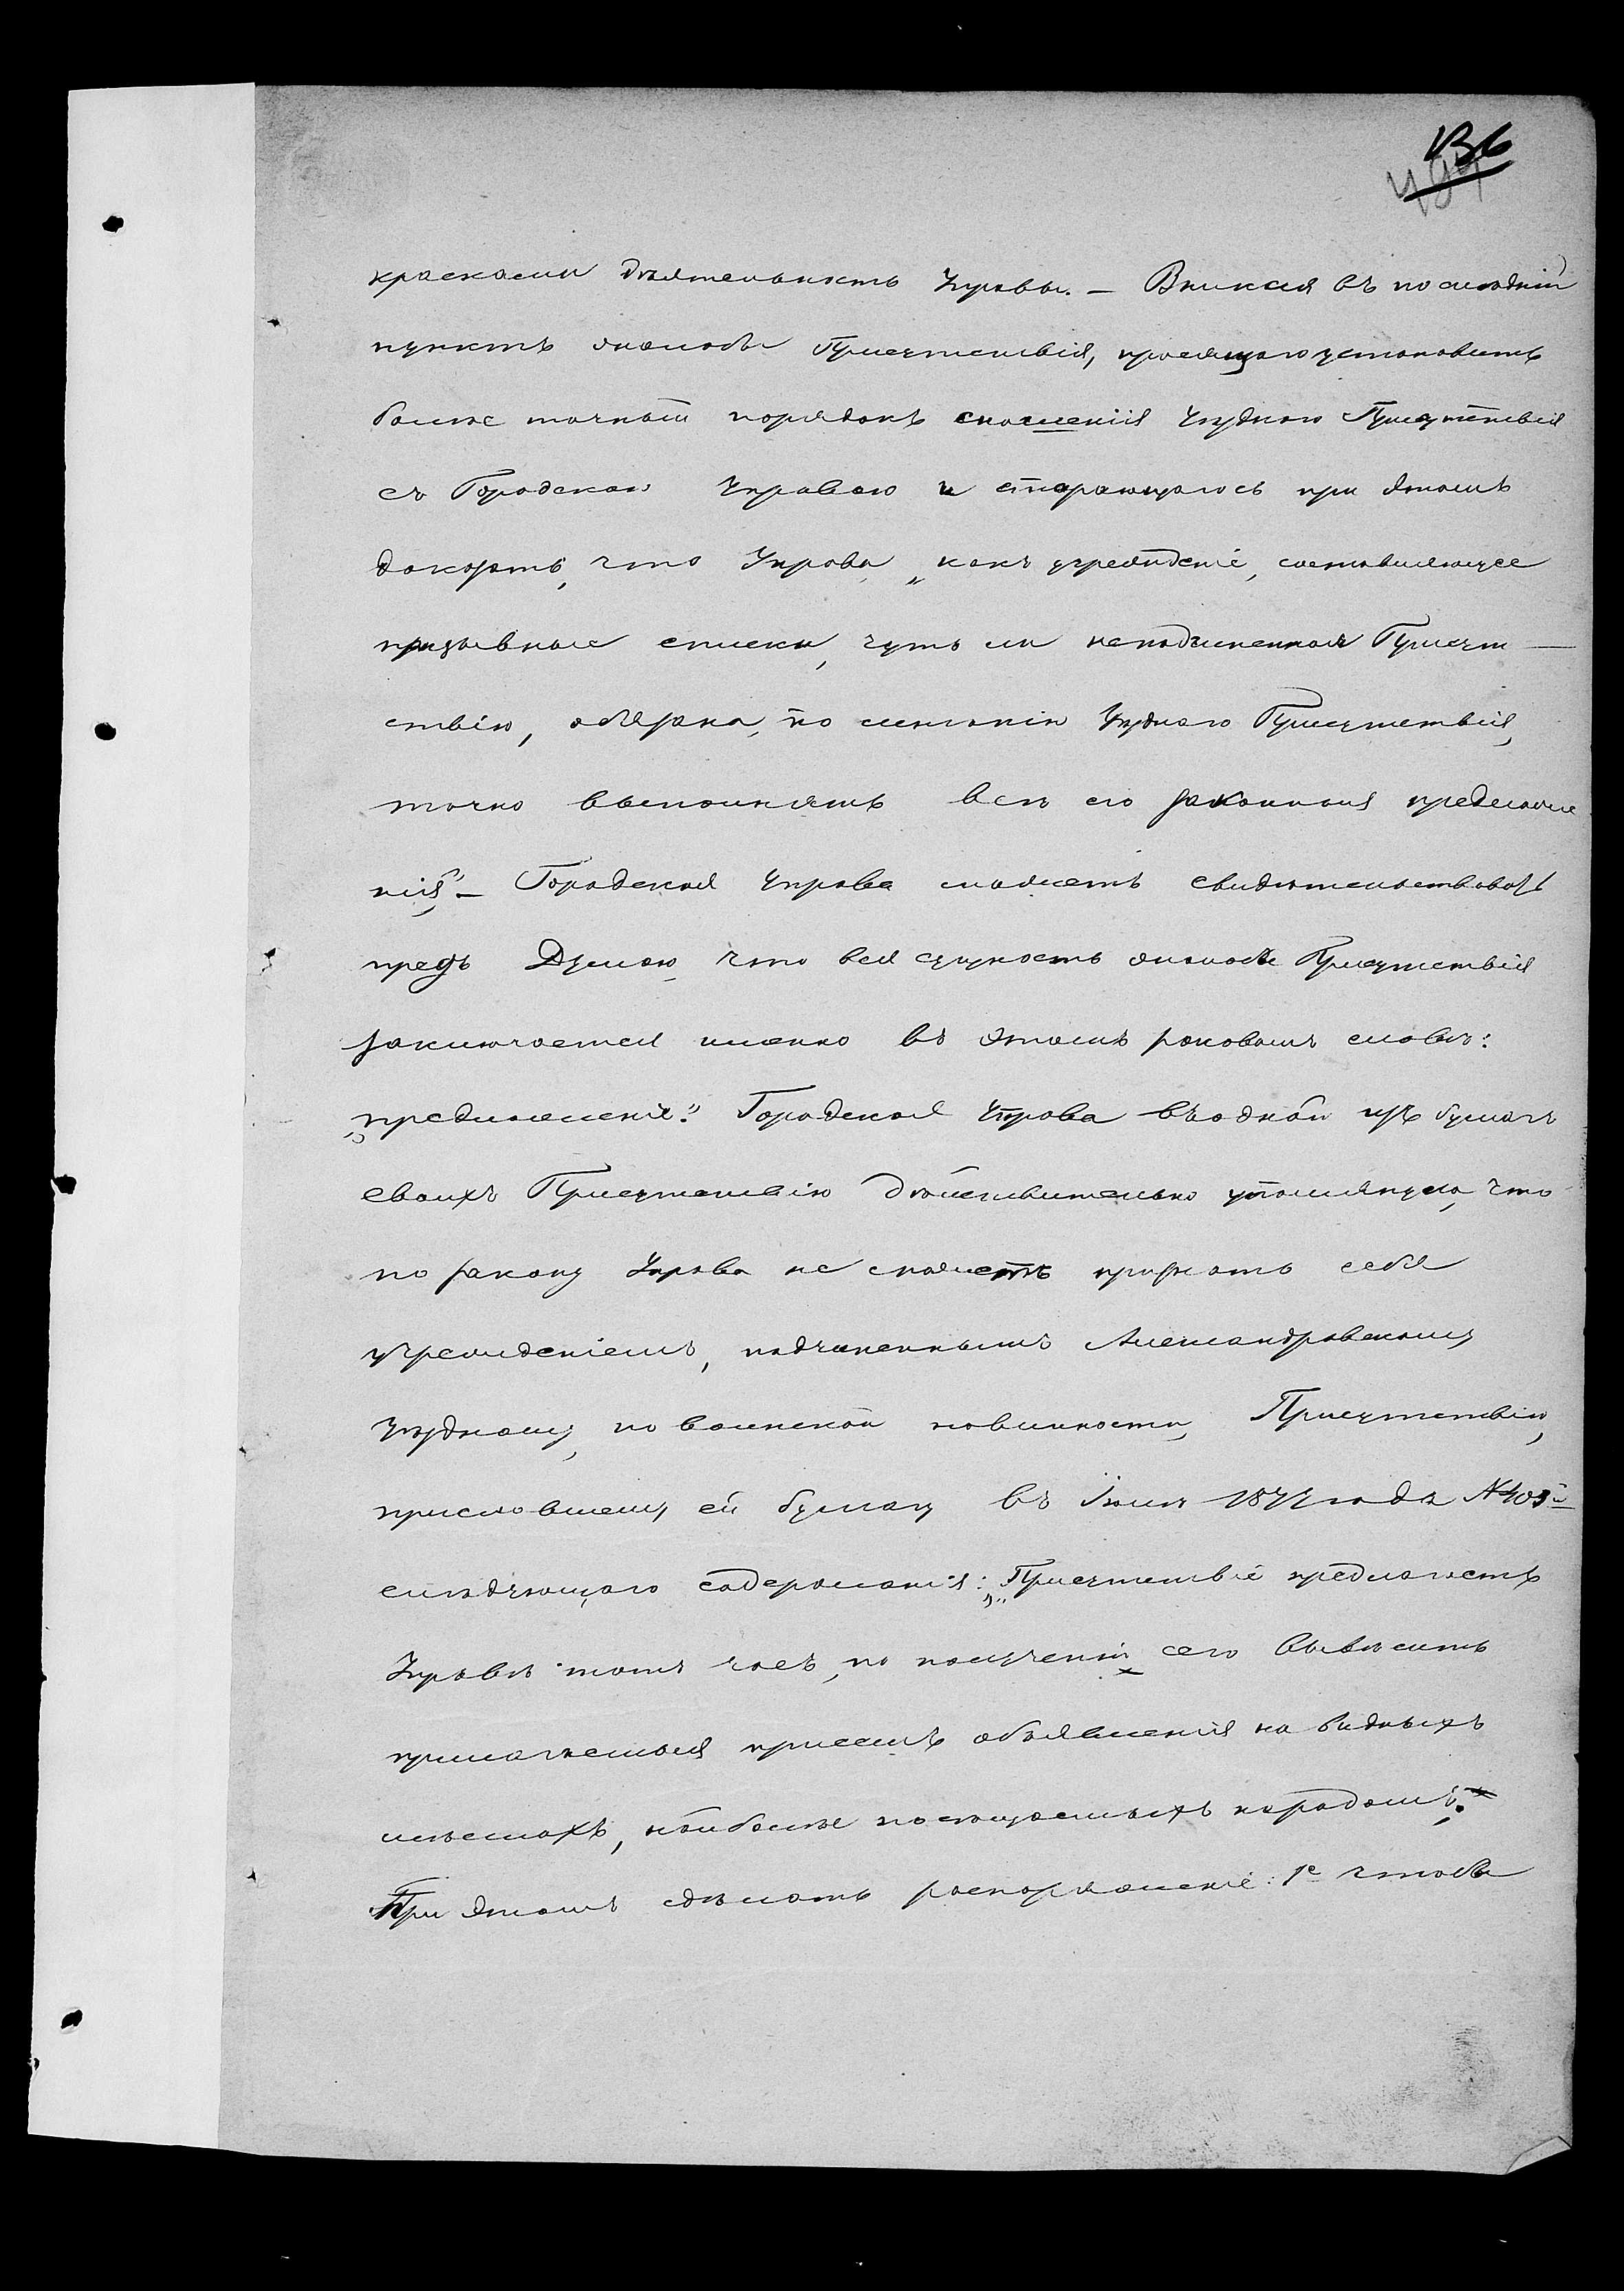 136
красками дѣятельность Управы. — Вникая въ послѣдній
пунктъ жалобы Присутствія, просящаго установить
болѣе точный порядокъ сношенія Уѣзднаго Присутствія
съ Городскою Управою и старающагося при этомъ
доказать, что Управа, „какъ учрежденіе, составляющее
призывные списки, чуть ли не подчиненная Присут—
ствію, обязана, по мнѣнію Уѣзднаго Присутствія,
точно выполнять всѣ его законныя предложе
нія“ — Городская Управа можетъ свидѣтельствовать
предъ Думою, что вся сущность жалобы Присутствія
заключается именно въ этомъ роковомъ словѣ:
„предложеніе“. Городская Управа въ одной изъ бумагъ
своихъ Присутствію дѣйствительно упомянула, что
по закону Управа не можетъ признать себя
учрежденіемъ, подчиненнымъ Александровскому
Уѣздному, по воинской повинности, Присутствію,
приславшему ей бумагу въ Іюлѣ 1877 года №
слѣдующаго содержанія: „Присутствіе предлагаетъ
Управѣ тотъ часъ, по полученіи сего вывѣсить
прилагаемыя при семъ объявленія на видныхъ
мѣстахъ, наиболѣе посѣщаемыхъ народомъ.
При этомъ сдѣлать распоряженіе: 1е чтобы